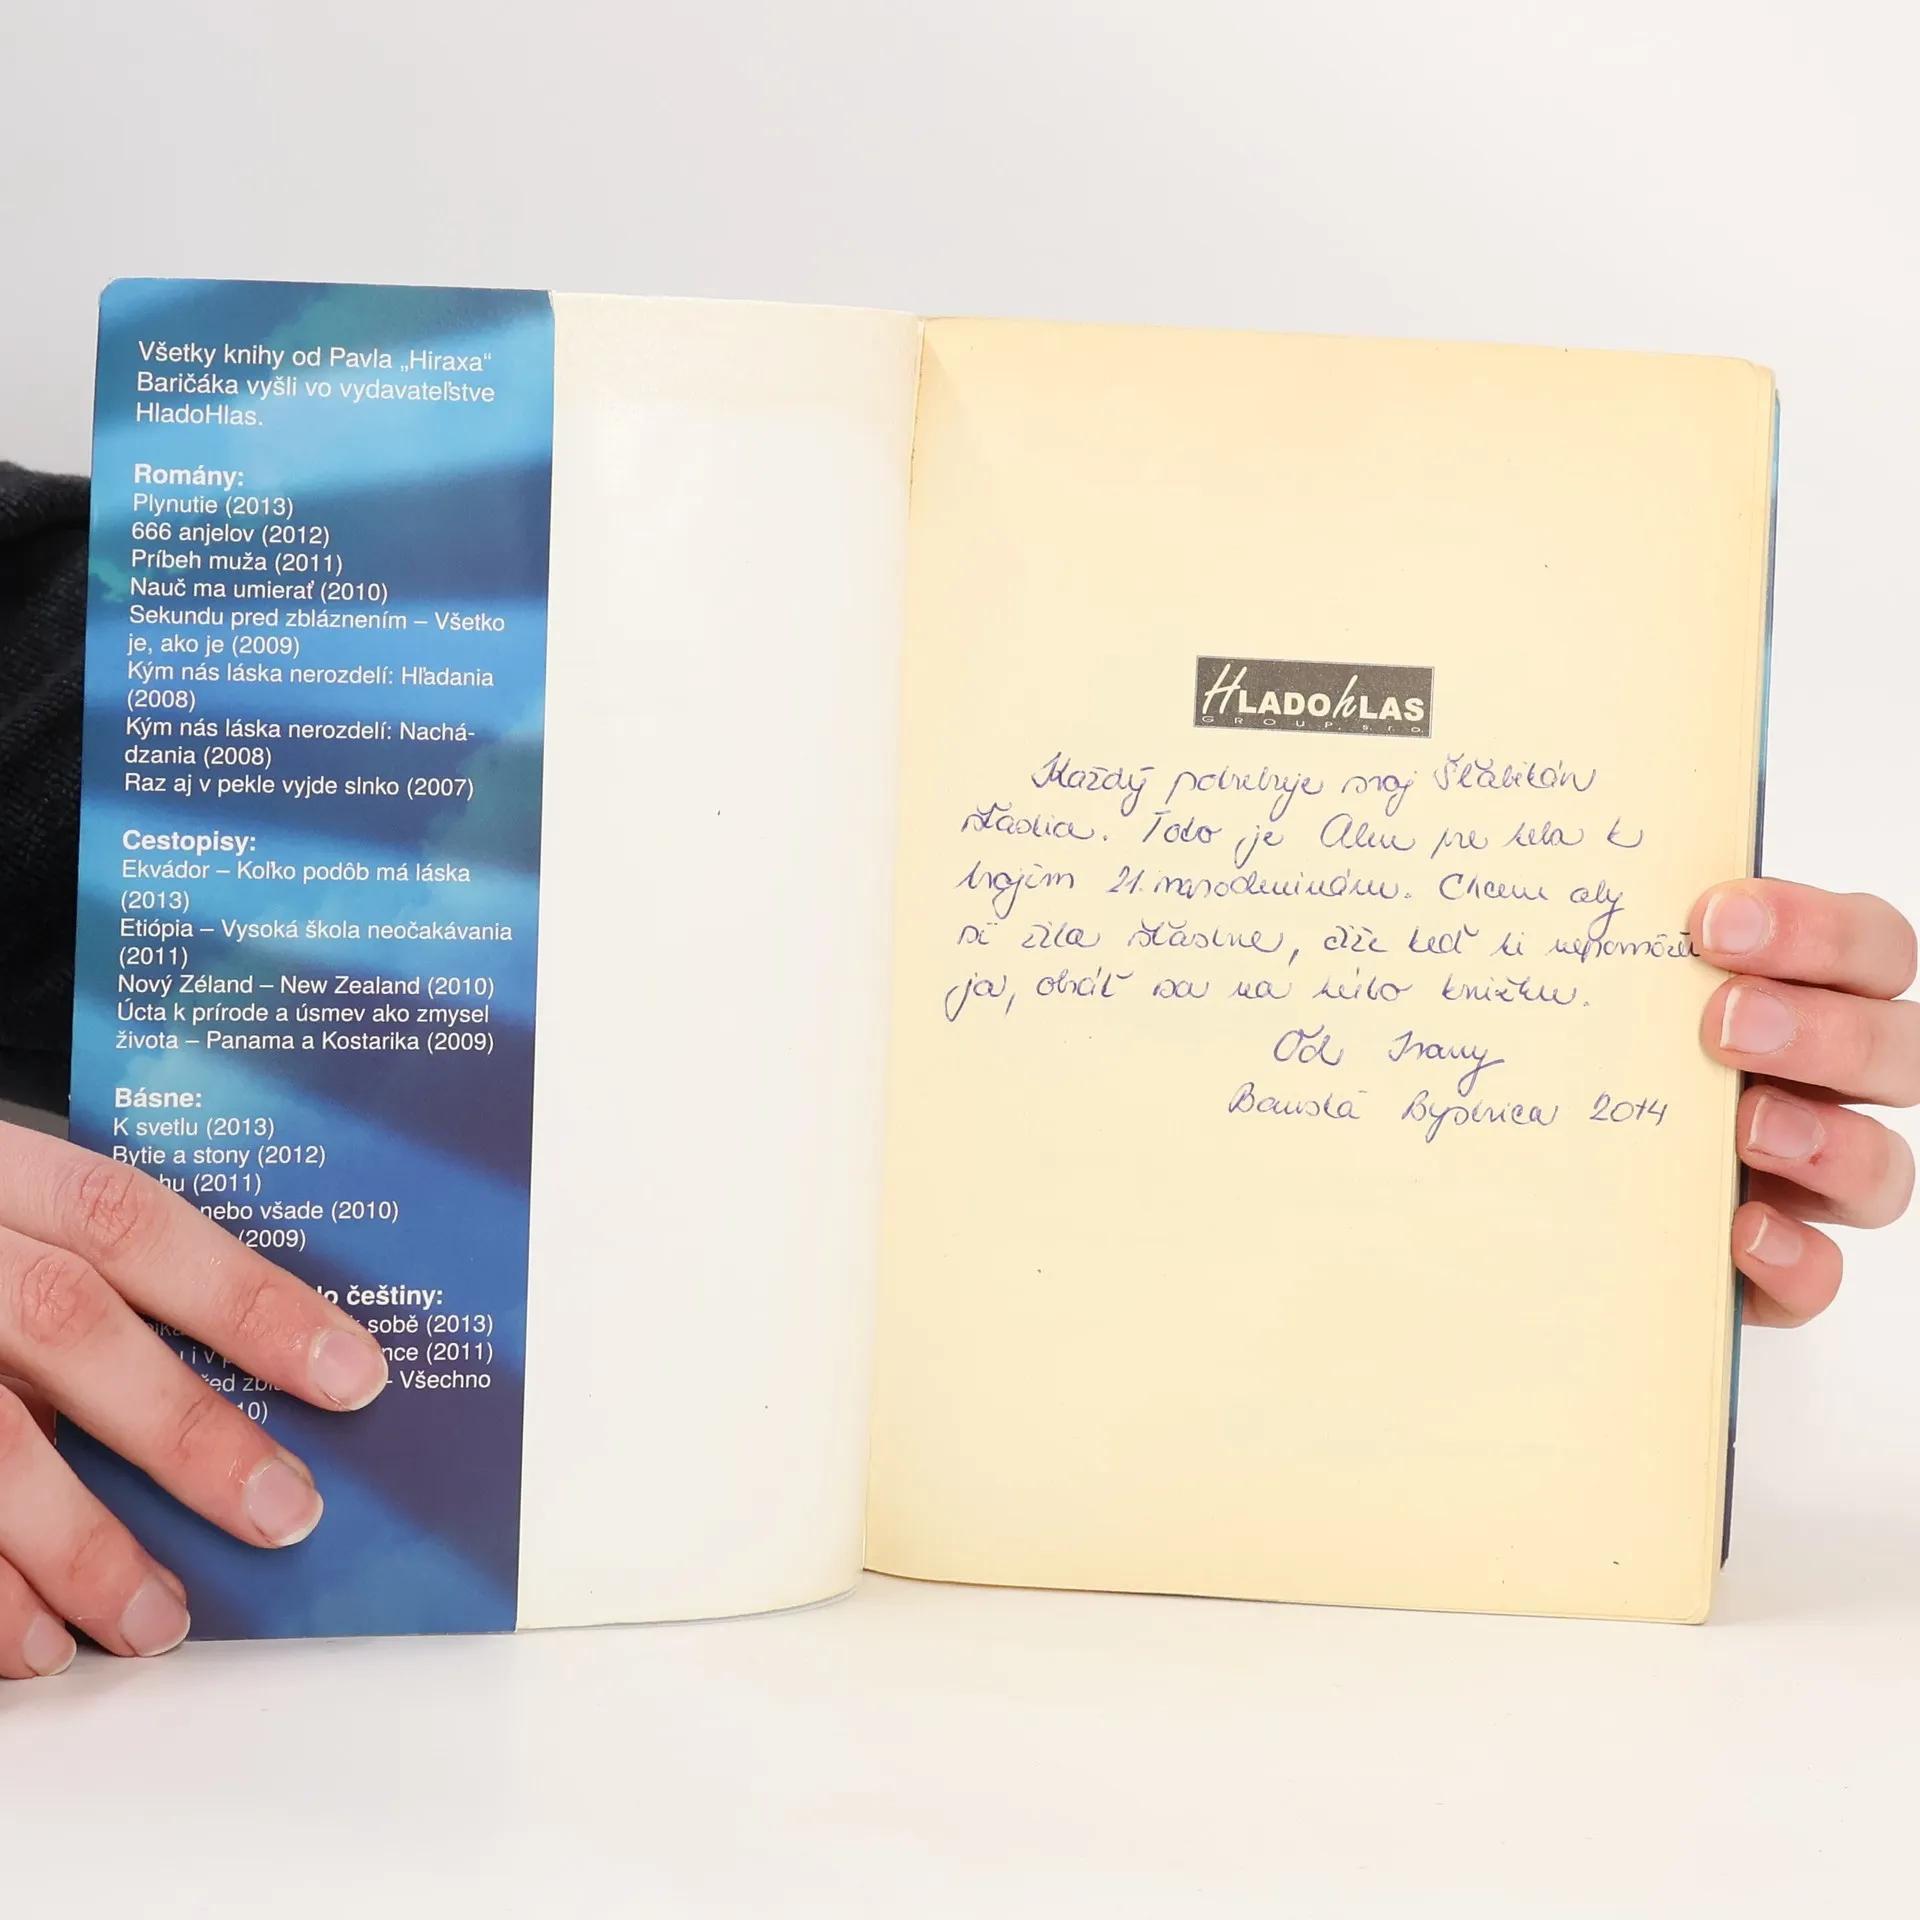 Všetky knihy od Pavla „Hiraxa“
Baričáka vyšli vo vydavateľstve
HladoHlas.
Romány:
Plynutie (2013)
666 anjelov (2012)
Príbeh muža (2011)
Nauč ma umierať (2010)
Sekundu pred zbláznením – Všetko
je, ako je (2009)
Kým nás láska nerozdelí: Hľadania
(2008)
Kým nás láska nerozdelí: Nachá-
dzania (2008)
Raz aj v pekle vyjde slnko (2007)
Cestopisy:
Ekvádor – Koľko podôb má láska
(2013)
Etiópia – Vysoká škola neočakávania
(2011)
Nový Zéland – New Zealand (2010)
Úcta k prírode a úsmev ako zmysel
života – Panama a Kostarika (2009)
Básne:
K svetlu (2013)
Bytie a stony (2012)
(2011)
nebo všade (2010)
(2009)
do češtiny:
k sobě (2013)
(2011)
– Všechno
HLADOhLAS
GROUP, s.r.o.
Každý potrebuje svoj Šlabikár
šťastia. Toto je pre teba k
tvojim 21. narodeninám. Chcem aby
si žila šťastne, čiže keď ti nepomôžem
ja, obráť sa na túto knižku.
Od Ivany
Banská Bystrica 2014